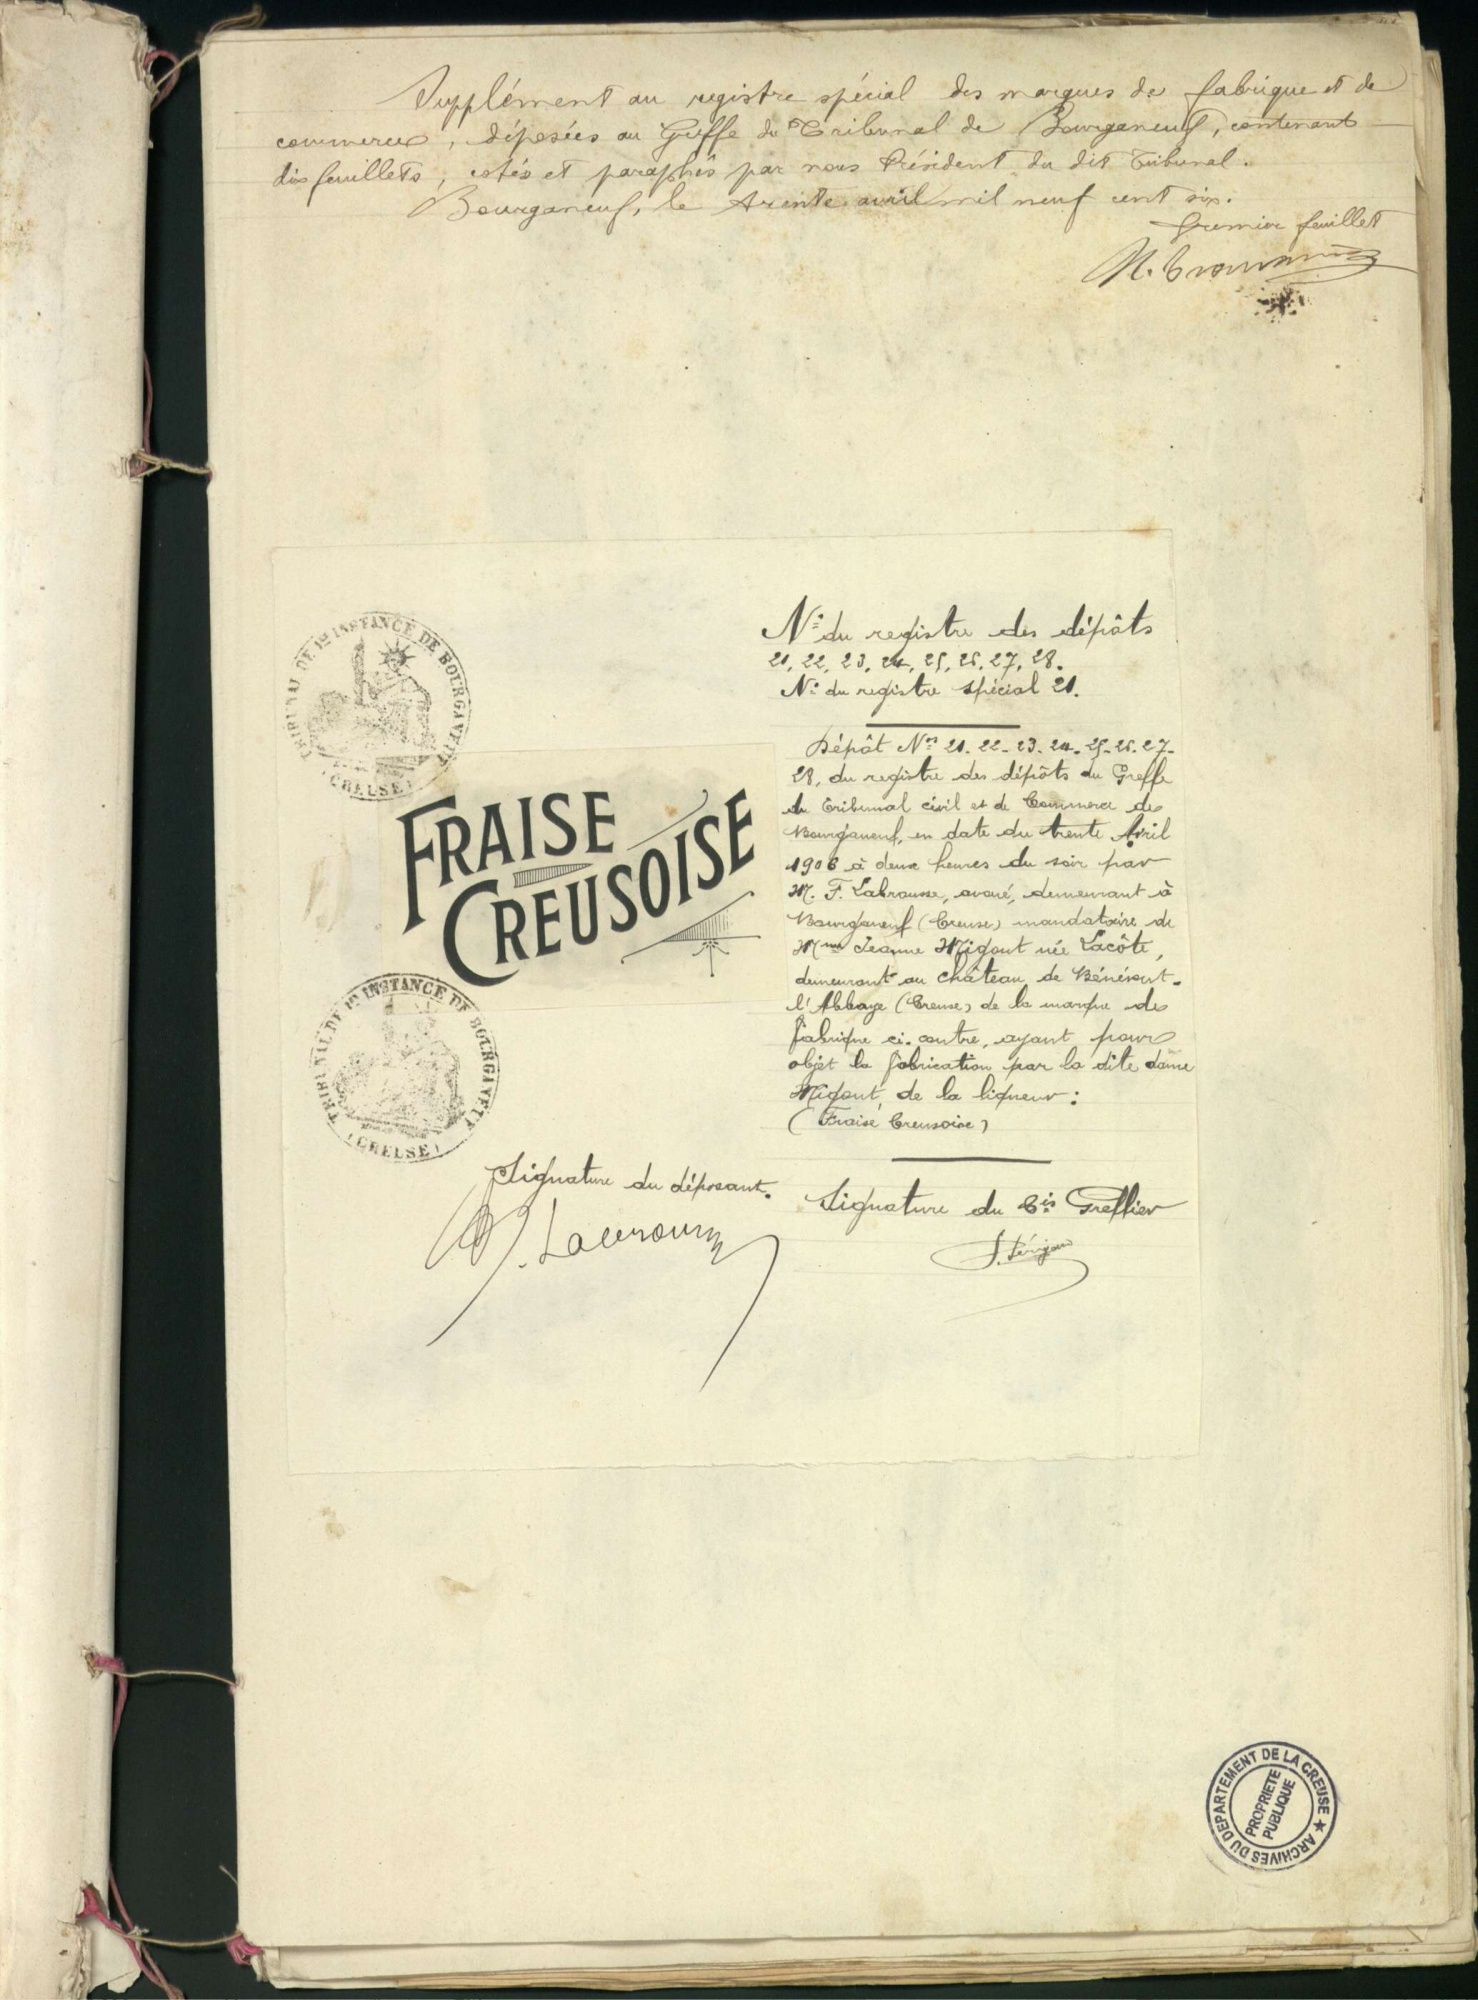 Supplément au registre spécial des marques de fabrique et de
commerce, déposées au Greffe du Tribunal de Bourganeuf, contenant
dix feuillets, cotés et paraphés par nous Président du dit Tribunal.
Bourganeuf, le trente avril mil neuf cent six.
Premier feuillet
TRIBUNAL DE 1re INSTANCE DE BOURGANEUF
(CREUSE)
N° du registre des dépôts
21, 22, 23, 24, 25, 26, 27, 28.
N° du registre spécial 21.
FRAISE
CREUSOISE
Dépôt Nos 21. 22. 23. 24. 25. 26. 27.
28, du registre des dépôts du Greffe
du Tribunal civil et de Commerce de
Bourganeuf, en date du trente Avril
1906 à deux heures du soir par
M. F. Labrousse, avoué, demeurant à
Bourganeuf (Creuse) mandataire de
Mme Jeanne Migout née Lacôte,
demeurant au château de Bénévent-
l'Abbaye (Creuse) de la marque de
fabrique ci-contre, ayant pour
objet la fabrication par la dite dame
Migout, de la liqueur :
(Fraise Creusoise)
TRIBUNAL DE 1re INSTANCE DE BOURGANEUF
(CREUSE)
Signature du déposant.
Signature du Cis Greffier
ARCHIVES DU DEPARTEMENT DE LA CREUSE ★
PROPRIETE
PUBLIQUE